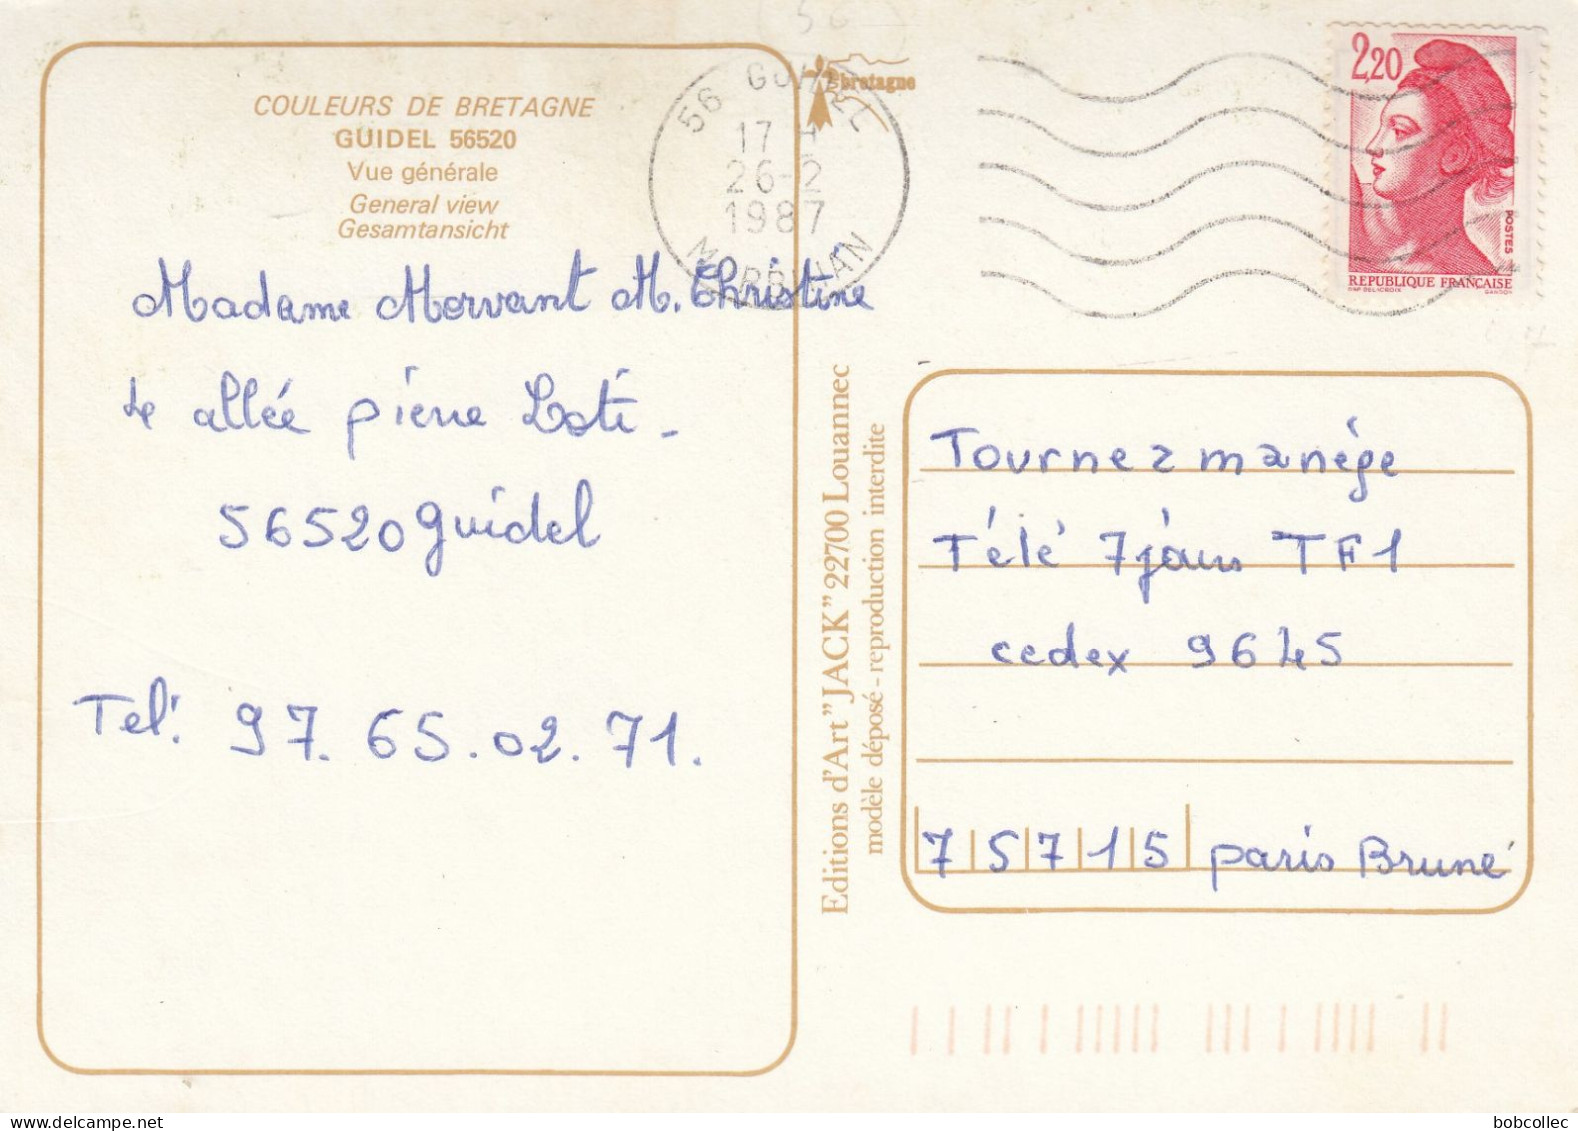 COULEURS DE BRETAGNE
GUIDEL 56520
Vue générale
General view
Gesamtansicht
Madame Morvant M. Christine
4 allée pierre Loti -
56520 guidel
Tel: 97.65.02.71.
56 GUIDEL
17 H
26-2
1987
MORBIHAN
bretagne
2,20
POSTES
REPUBLIQUE FRANÇAISE
D'AP DELACROIX GANDON
Editions d'Art "JACK" 22700 Louannec
modèle déposé - reproduction interdite
Tournez manège
Télé 7 jours TF1
cedex 9645
75715 paris Brune
bobcollec